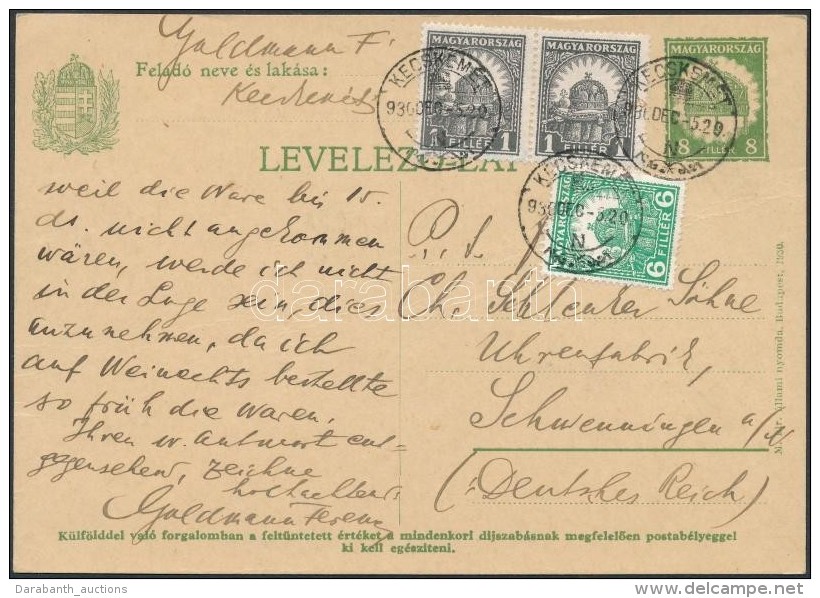 Goldmann F.
Feladó neve és lakása:
Kecskemét
MAGYARORSZÁG
1 FILLÉR 1
MAGYARORSZÁG
1 FILLÉR 1
MAGYARORSZÁG
8 FILLÉR 8
KECSKEMÉT
930DEC-5.20.
N
KECSKEMÉT
930DEC-5.20.
N
KECSKEMÉT
930DEC-5.20.
N
MAGYARORSZÁG
6 FILLÉR 6
LEVELEZŐ-LAP
weil die Ware bis 15.
ds. nicht angekommen
wären, werde ich nicht
in der Lage sein, dies
anzunehmen, da ich
auf Weinachts bestellte
so früh die Waren,
Ihren w. Antwort ent-
gegensehend, zeichne
hochachtend:
Goldmann Ferenc
Ch. Schlenker Söhne
Uhrenfabrik,
Schwenningen a/N
(: Deutsches Reich)
M. kir. állami nyomda, Budapest, 1930.
Külfölddel való forgalomban a feltüntetett értéket a mindenkori díjszabásnak megfelelően postabélyeggel
ki kell egészíteni.
darabanth
Darabanth_auctions
delcampe.net